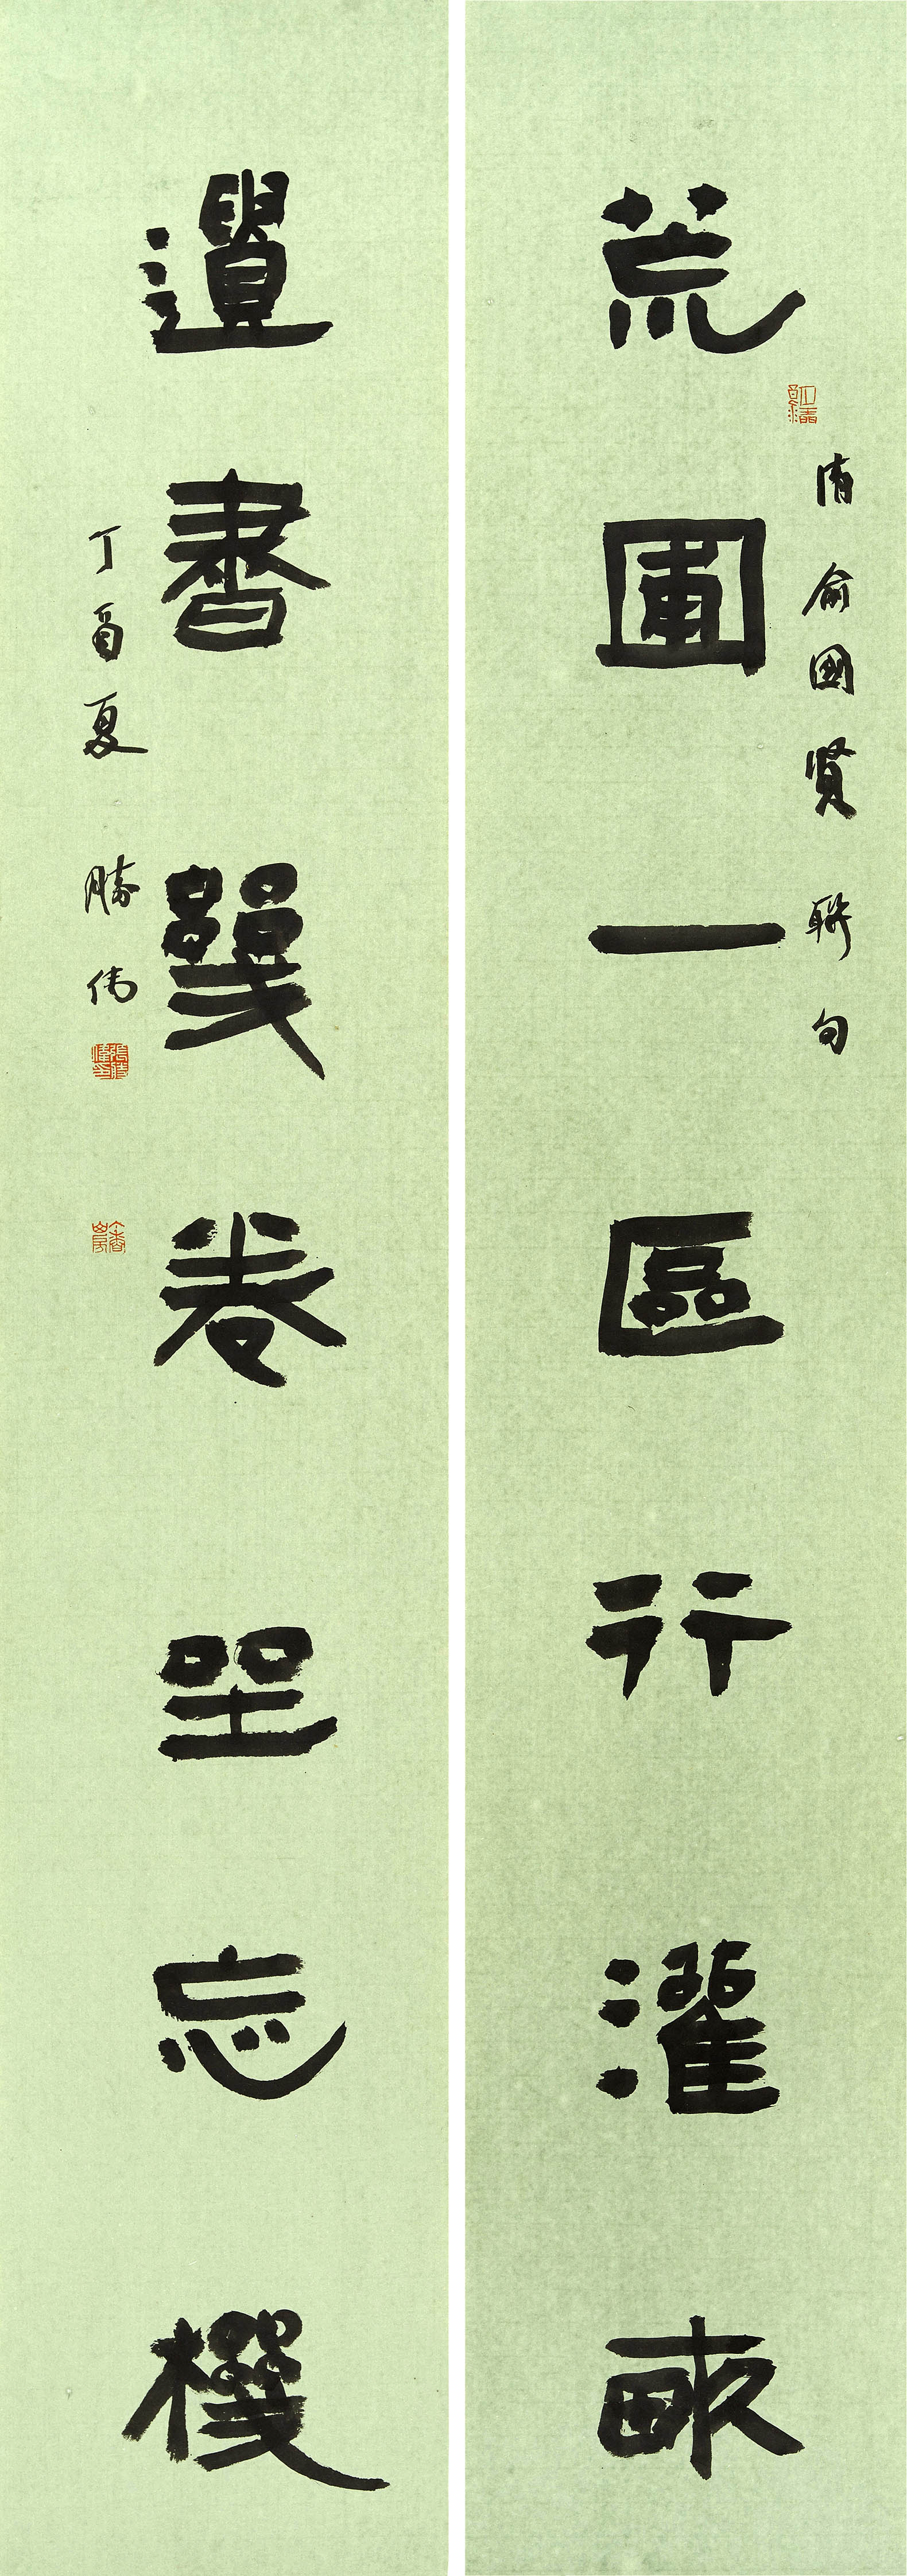 荒圃一區行灌畝
清俞國賢聯句
遺書幾卷坐忘機
丁酉夏 勝偉